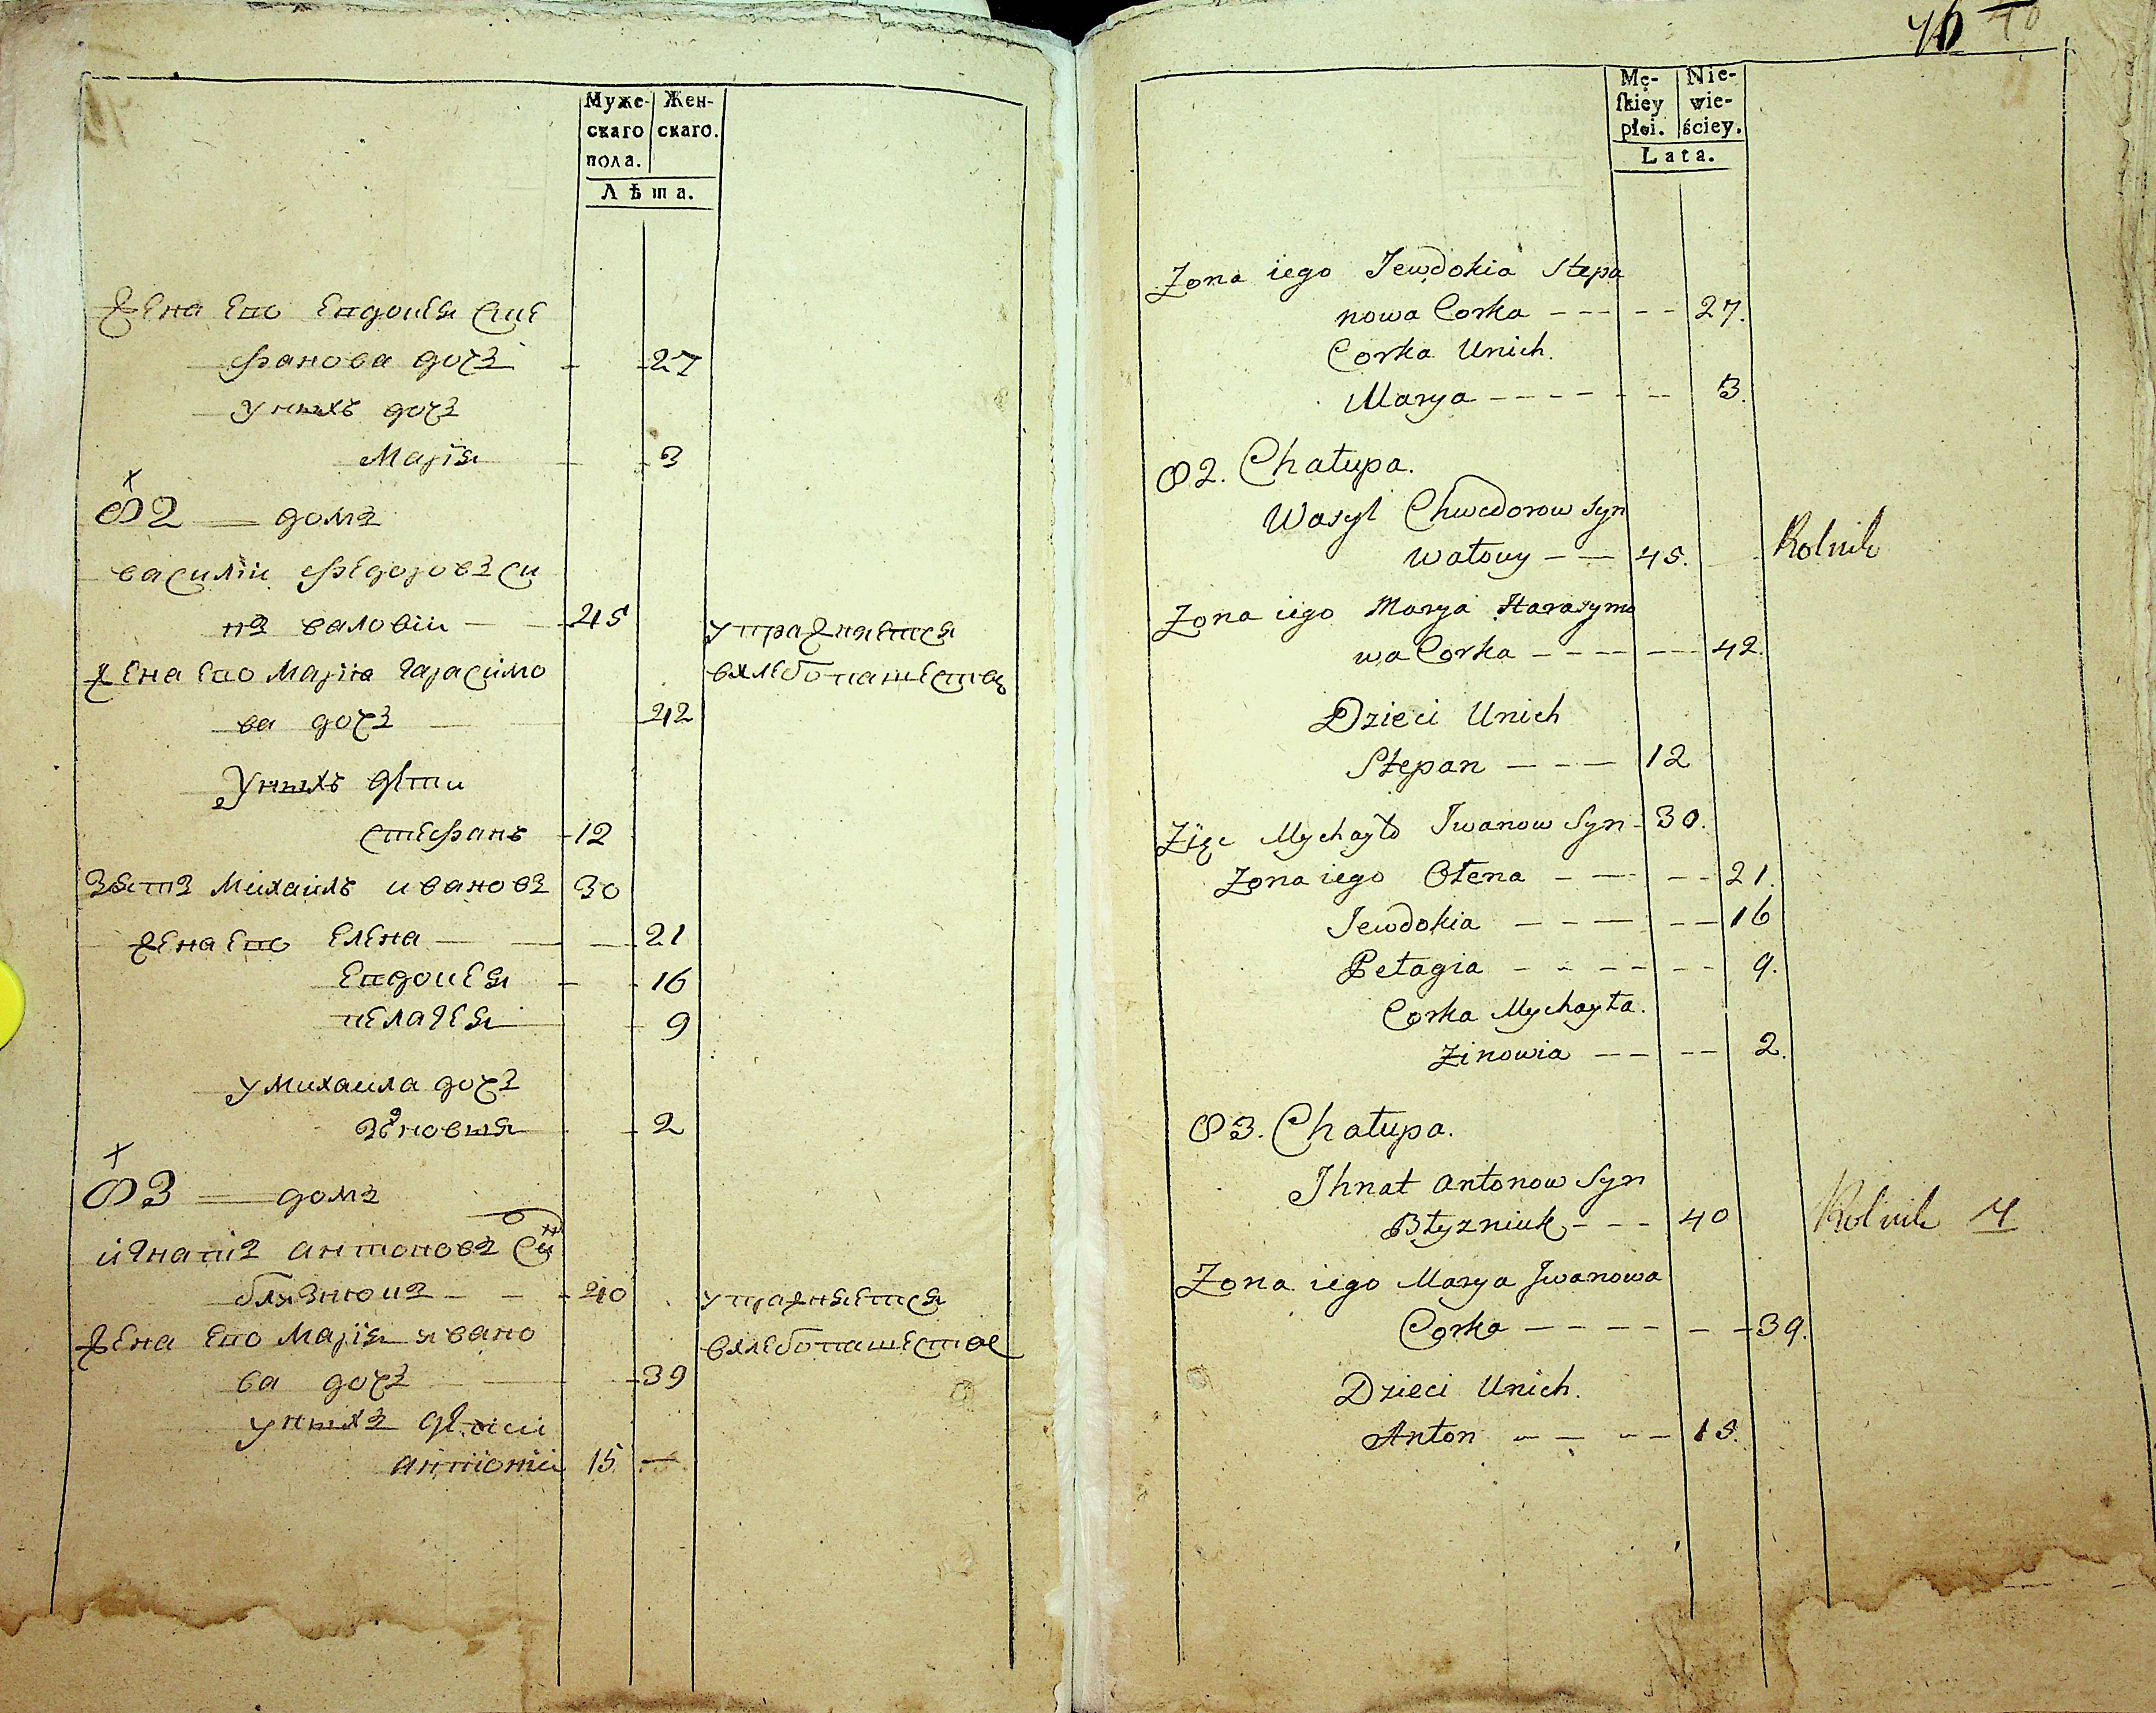 Муже- Жен-
скаго скаго.
пола.
Лѣта.
жена его евдокея сте
фанова дочъ 27
у нихъ дочъ
Марія 3
82 домъ
василіи федоровъ си
нъ валовіи 45 упражняется
жена его Марія гарасимо вхлебопашестве
ва дочъ 42
у нихъ дети
стефанъ 12
зять Михаилъ ивановъ 30
жена его елена 21
евдокея 16
пелагея 9
у михаила дочъ
зѣновия 2
83 домъ
игнатіъ антоновъ си
близнюкъ 40 упражняется
жена его Марія ивано вхлебопашестве
ва дочъ 39
у нихъ дети
антоній 15
46 40
Mę- Nie-
ſkiey wie-
płci. ściey.
Lata.
Zona iego Jewdokia Stepa
nowa Corka 27.
Corka Unich.
Marya 3.
82. Chałupa.
Wasyl Chwedorow Syn
Wałowy 45. Rolnik
Zona iego Marya Harasymo
wa Corka 42.
Dzieci Unich
Stepan 12
Zięc Mychayło Jwanow Syn 30.
Zona iego Ołena 21.
Jewdokia 16
Pełagia 9.
Corka Mychayła.
Zinowia 2.
83. Chałupa.
Jhnat Antonow Syn
Błyzniuk 40 Rolnik
Zona iego Marya Jwanowa
Corka 39.
Dzieci Unich.
Anton 15.